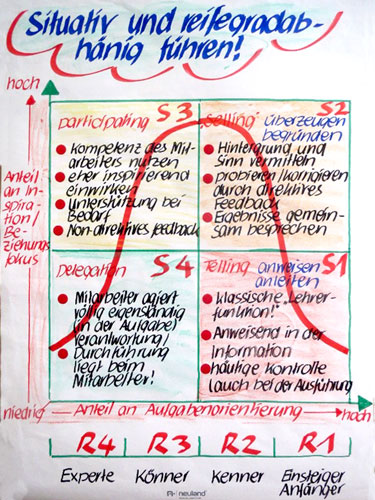 Situativ und reifegradab-
hänig führen!
hoch
S3
participating
kompetenz des Mit-
arbeiters nutzen
eher inspirierend
einwirken
unterstützung bei
Bedarf
Non-direktives feedback
S2
"Selling" überzeugen
begründen
Hintergrund und
Sinn vermitteln
probieren/korrigieren
durch direktives
Feedback
Ergebnisse gemein-
sam besprechen
Anteil
an In-
spira-
tion/
Be-
ziehungs
fokus
Delegation
S4
Mitarbeiter agiert
völlig eigenständig
(in der Aufgabe)
verantwortung/
Durchführung
liegt beim
Mitarbeiter!
Telling anweisen
S1
anleiten
klassische „Lehrer-
funktion!"
Anweisend in der
Information
häufige kontrolle
(auch bei der Ausführung
niedrig
Anteil an Aufgabenorientierung
hoch
R4 R3 R2 R1
Experte Könner Kenner Einsteiger
Anfänger
neuland